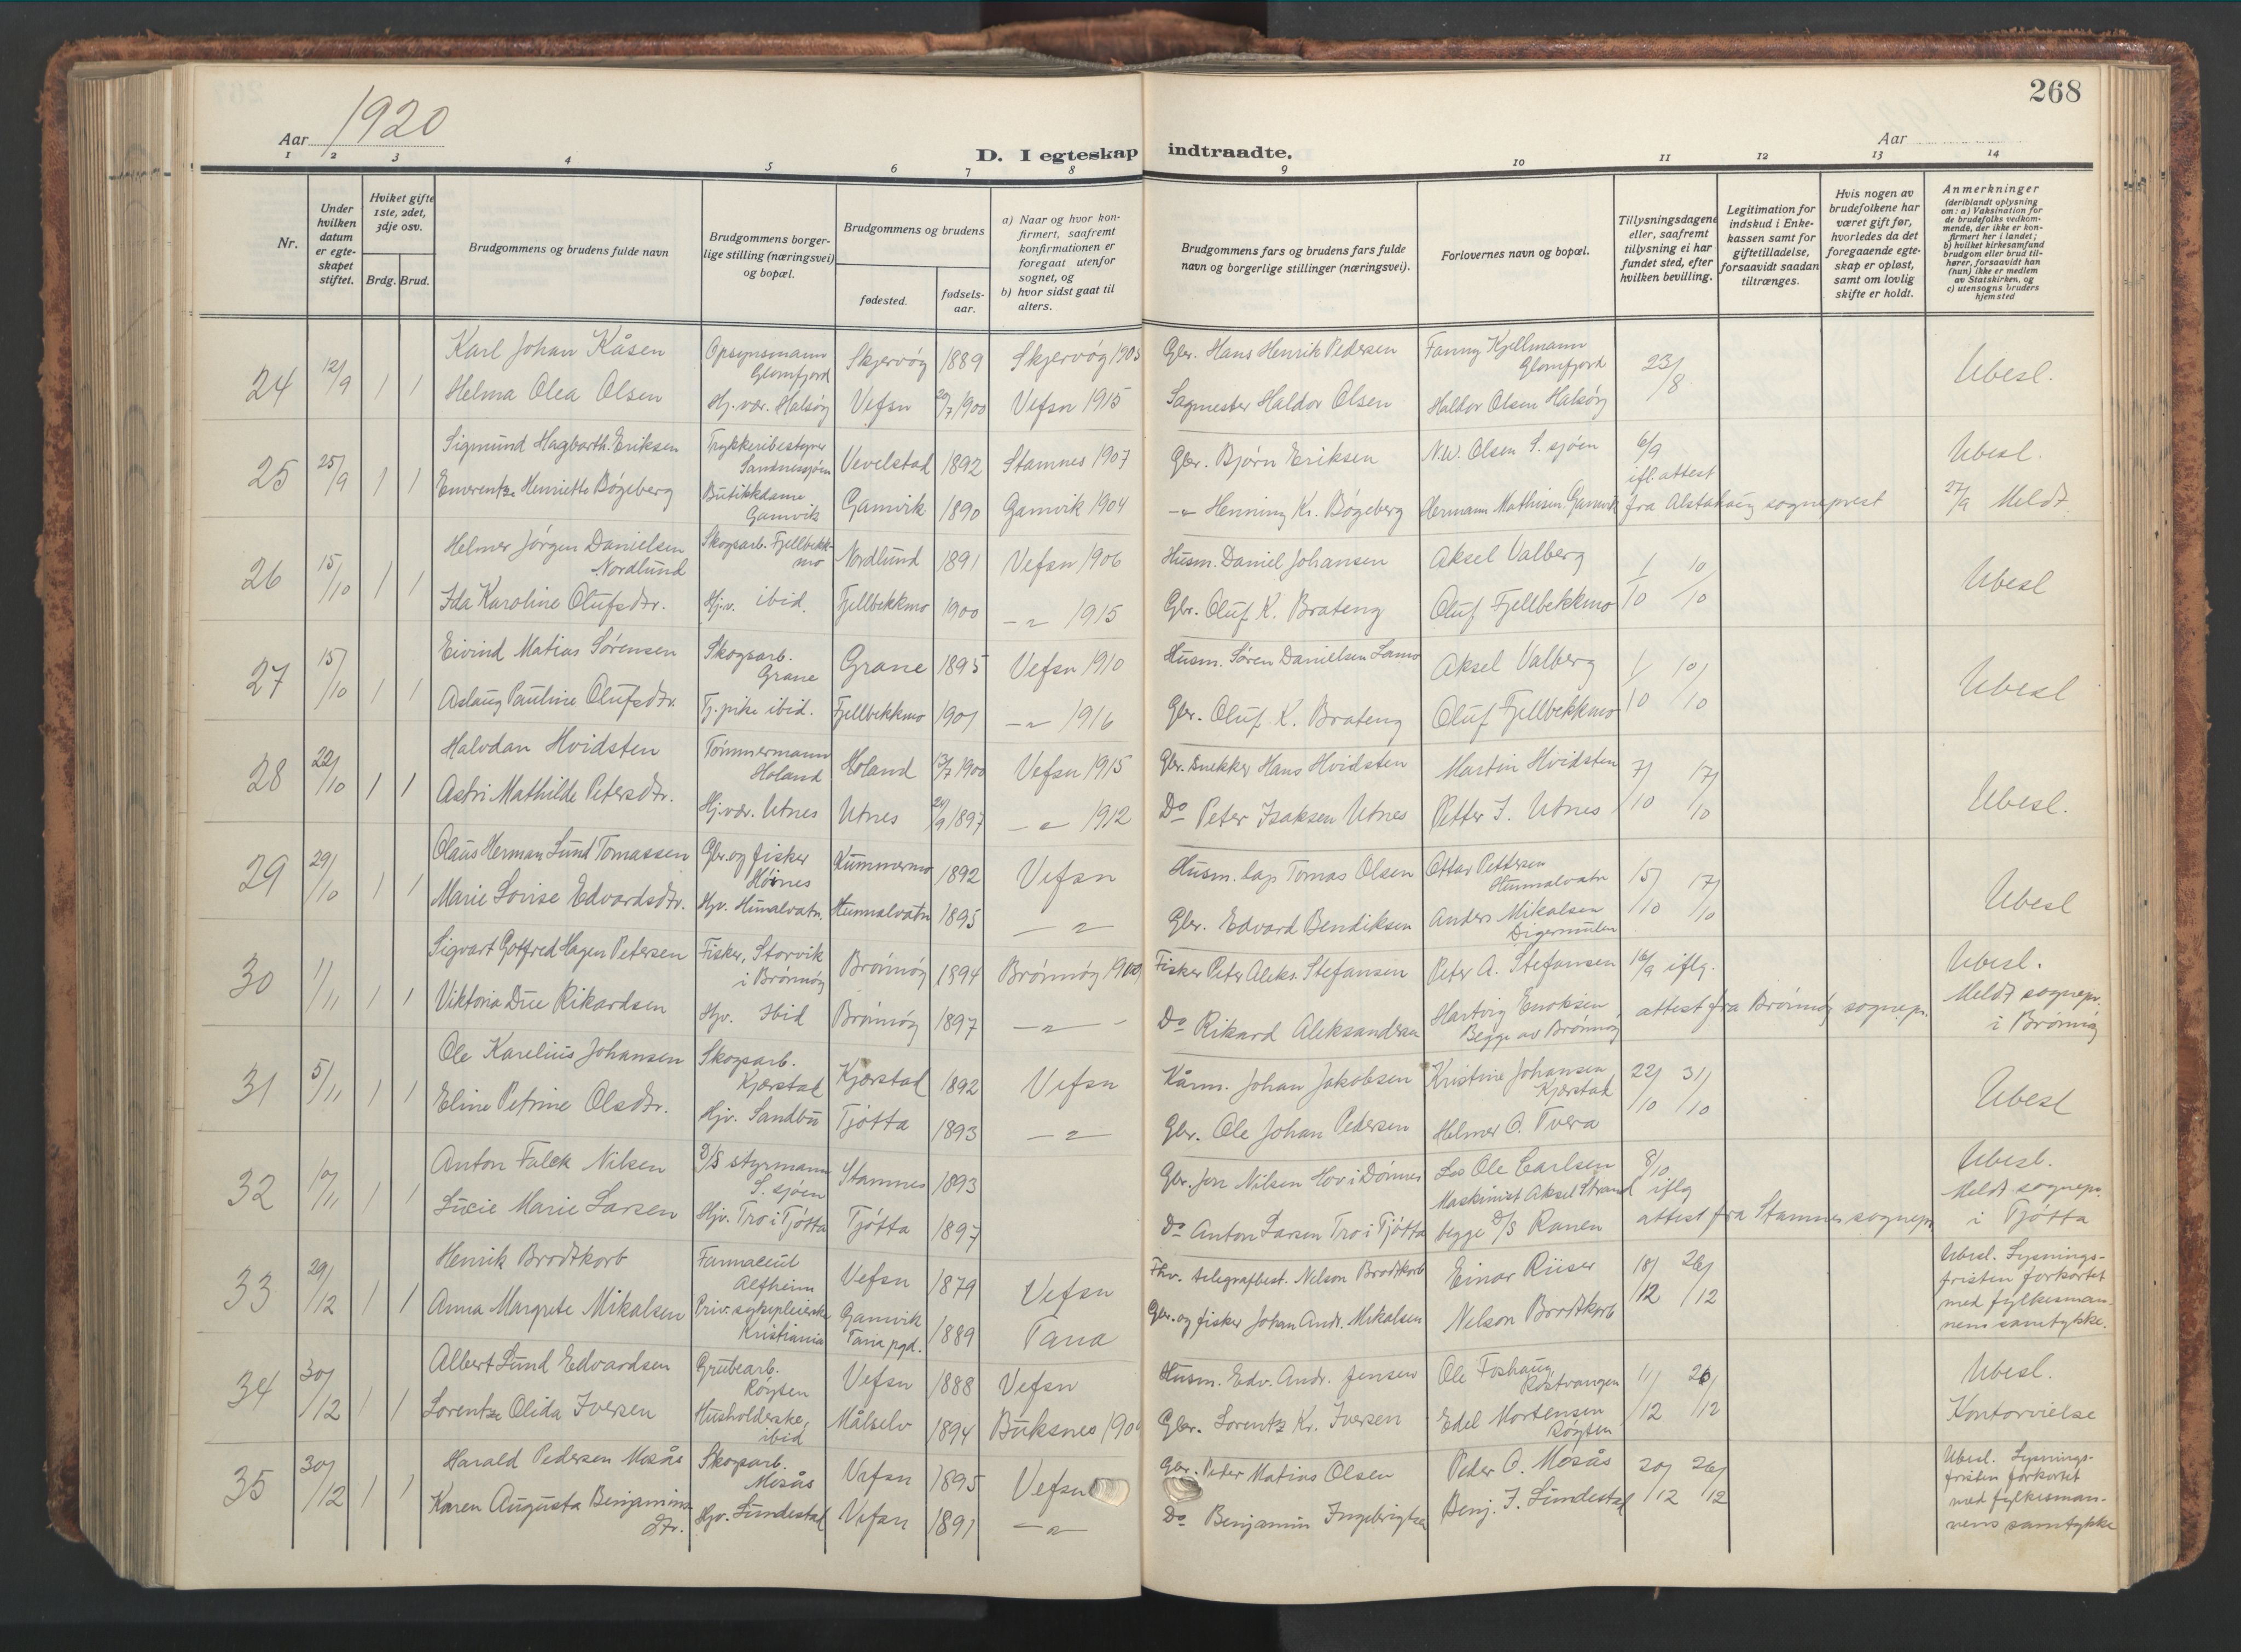 268
Aar 1920
Aar
D. I egteskap indtraadte.
1 2 3 4 5 6 7 8 9 10 11 12 13 14
Nr.
Under hvilken datum er egteskapet stiftet.
Hvilket gifte 1ste, 2det, 3dje osv.
Brdg. Brud.
Brudgommens og brudens fulde navn
Brudgommens borgerlige stilling (næringsvei) og bopæl.
Brudgommens og brudens
fødested.
fødselsaar.
a) Naar og hvor konfirmert, saafremt konfirmationen er foregaat utenfor sognet, og
b) hvor sidst gaat til alters.
Brudgommens fars og brudens fars fulde navn og borgerlige stillinger (næringsvei).
Forlovernes navn og bopæl.
Tillysningsdagene eller, saafremt tillysning ei har fundet sted, efter hvilken bevilling.
Legitimation for indskud i Enkekassen samt for giftetilladelse, forsaavidt saadan tiltrænges.
Hvis nogen av brudefolkene har været gift før, hvorledes da det foregaaende egteskap er opløst, samt om lovlig skifte er holdt.
Anmerkninger
(deriblandt oplysning om: a) Vaksination for de brudefolks vedkommende, der ikke er konfirmert her i landet;
b) hvilket kirkesamfund brudgom eller brud tilhører, forsaavidt han (hun) ikke er medlem av Statskirken, og
c) utensogns bruders hjemsted
24 12/9 1 1 Karl Johan Kåsen Opsynsmann Glomfjord Skjervøy 1889 Skjervøy 1905 Gbr. Hans Henrik Pedersen Fanny Kjellmann Glomfjord 23/8 Ubesl.
Helma Olea Olsen Hj. vær. Halsøy Vefsn 29/7 1900 Vefsn 1915 Sagmester Haldor Olsen Haldor Olsen Halsøy
25 25/9 1 1 Sigmund Hagbarth. Eriksen Trykkeribestyrer Sandnessjøen Vevelstad 1892 Stamnes 1907 Gbr. Bjørn Eriksen N.W. Olsen S. sjøen 6/9 ifl. attest Ubesl.
Emerentze Henriette Bøgeberg Butikkdame Gamvik Gamvik 1890 Gamvik 1904 -"- Henning Kr. Bøgeberg Hermann Mathisen Gamvik fra Alstahaug sogneprest 27/9 Meldt
26 15/10 1 1 Helmer Jørgen Danielsen Nordlund Skogsarb. Fjellbekkmo Nordlund 1891 Vefsn 1906 Husm. Daniel Johansen Aksel Valberg 1/10 10/10 Ubesl
Ida Karoline Olufsdtr. Hj.v. ibid. Fjellbekkmo 1900 -"- 1915 Gbr. Oluf K. Brateng Oluf Fjellbekkmo
27 15/10 1 1 Eivind Matias Sørensen Skogsarb. Grane Grane 1895 Vefsn 1910 Husm. Søren Danielsen Aksel Valberg 1/10 10/10 Ubesl
Aslaug Pauline Olufsdtr. Tj. pike ibid. Fjellbekkmo 1901 -"- 1916 Gbr. Oluf K. Brateng Oluf Fjellbekkmo
28 22/10 1 1 Halvdan Hvidsten Tømmermann Holand Holand 1900 Vefsn 1915 Gbr. Snekker Hans Hvidsten Martin Hvidsten 7/10 17/10 Ubesl.
Astri Mathilde Petersdtr. Hj.vær. Utnes Utnes 24/9 1897 -"- 1912 Do Peter Isaksen Utnes Petter I. Utnes
29 29/10 1 1 Claus Herman Lund Tomassen Gbr. og fisker Høines Kummermo 1892 Vefsn Husm. lap Tomas Olsen Ottar Pettersen Hunnalvatn 15/10 17/10 Ubesl
Marie Lovise Edvardsdtr. Hjv. Hunalvatn. Hunnalvatn 1895 -"- Gbr. Edvard Bendiksen Anders Mikalsen Digermulen
30 1/11 1 1 Sigvart Gotfred Hagen Petersen Fisker, Storvik i Brønnøy Brønnøy 1894 Brønnøy Fisker Peter Aleks. Stefansen Peter A. Stefansen 16/9 iflg. Ubesl.
Viktoria Due Rikardsen Hjv. Ibid Brønnøy 1897 -"- Do Rikard Aleksandersen Hartvig Enoksen Begge av Brønnøy attest fra Brønnøy sognepr. Meldt sognepr. i Brønnøy
31 5/11 1 1 Ole Karelius Johansen Skogsarb. Kjærstad Kjærstad 1892 Vefsn Kårm. Johan Jakobsen Kristine Johansen, Kjærstad 22/10 31/10 Ubesl
Eline Petrine Olsdtr. Hjv. Sandbu Tjøtta 1893 -"- Gbr. Ole Johan Pedersen Helmer O. Tvera
32 10/11 1 1 Anton Falck Nilsen D/S styrmann S. sjøen Stamnes 1893 Gbr. Jon Nilsen Hov i Dønnes Los Ole Carlsen 8/10 iflg Ubesl.
Lucie Marie Larsen Hjv. Tro i Tjøtta Tjøtta 1897 Do Anton Larsen Tro i Tjøtta Maskinist Aksel Strand begge D/S Ranen attest fra Stamnes sognepr. Meldt sognepr. i Tjøtta
33 29/12 1 1 Henrik Brodtkorb Farmaceut Alfheim Vefsn 1879 Vefsn Fhv. telegrafbest. Nelson Brodtkorb Einar Riiser 18/12 26/12 Ubesl. Lysningsfristen forkortet med fylkesmannens samtykke.
Anna Margrete Mikalsen Priv. sykepleierske Kristiania Gamvik Tana pgd. 1889 Tana Gbr. og fisker Johan Andr. Mikalsen Nelson Brodtkorb
34 30/12 1 1 Albert Lund Edvardsen Grubearb. Røyten Vefsn 1888 Vefsn Husm. Edv. Andr. Jensen Ole Foshaug Røstvangen 11/12 26/12 Ubesl.
Lorentze Olida Iversen Husholderske, ibid Målselv 1894 Buksnes Gbr. Lorentz Kr. Iversen Edel Mortensen Røyten Kontorvielse
35 30/12 1 1 Harald Pedersen Mosås Skogsarb. Mosås Vefsn 1895 Vefsn Gbr. Peter Matias Olsen Peder O. Mosås 20/12 26/12 Ubesl. Lysningsfristen forkortet med fylkesmannens samtykke
Karen Augusta Benjaminsdtr. Hjv. Lundestad Vefsn 1891 -"- Do Benjamin Ingebrigtsen Benj. I. Lundestad